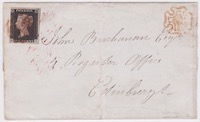 John Buchanan Esq
Register Office
Edinburgh